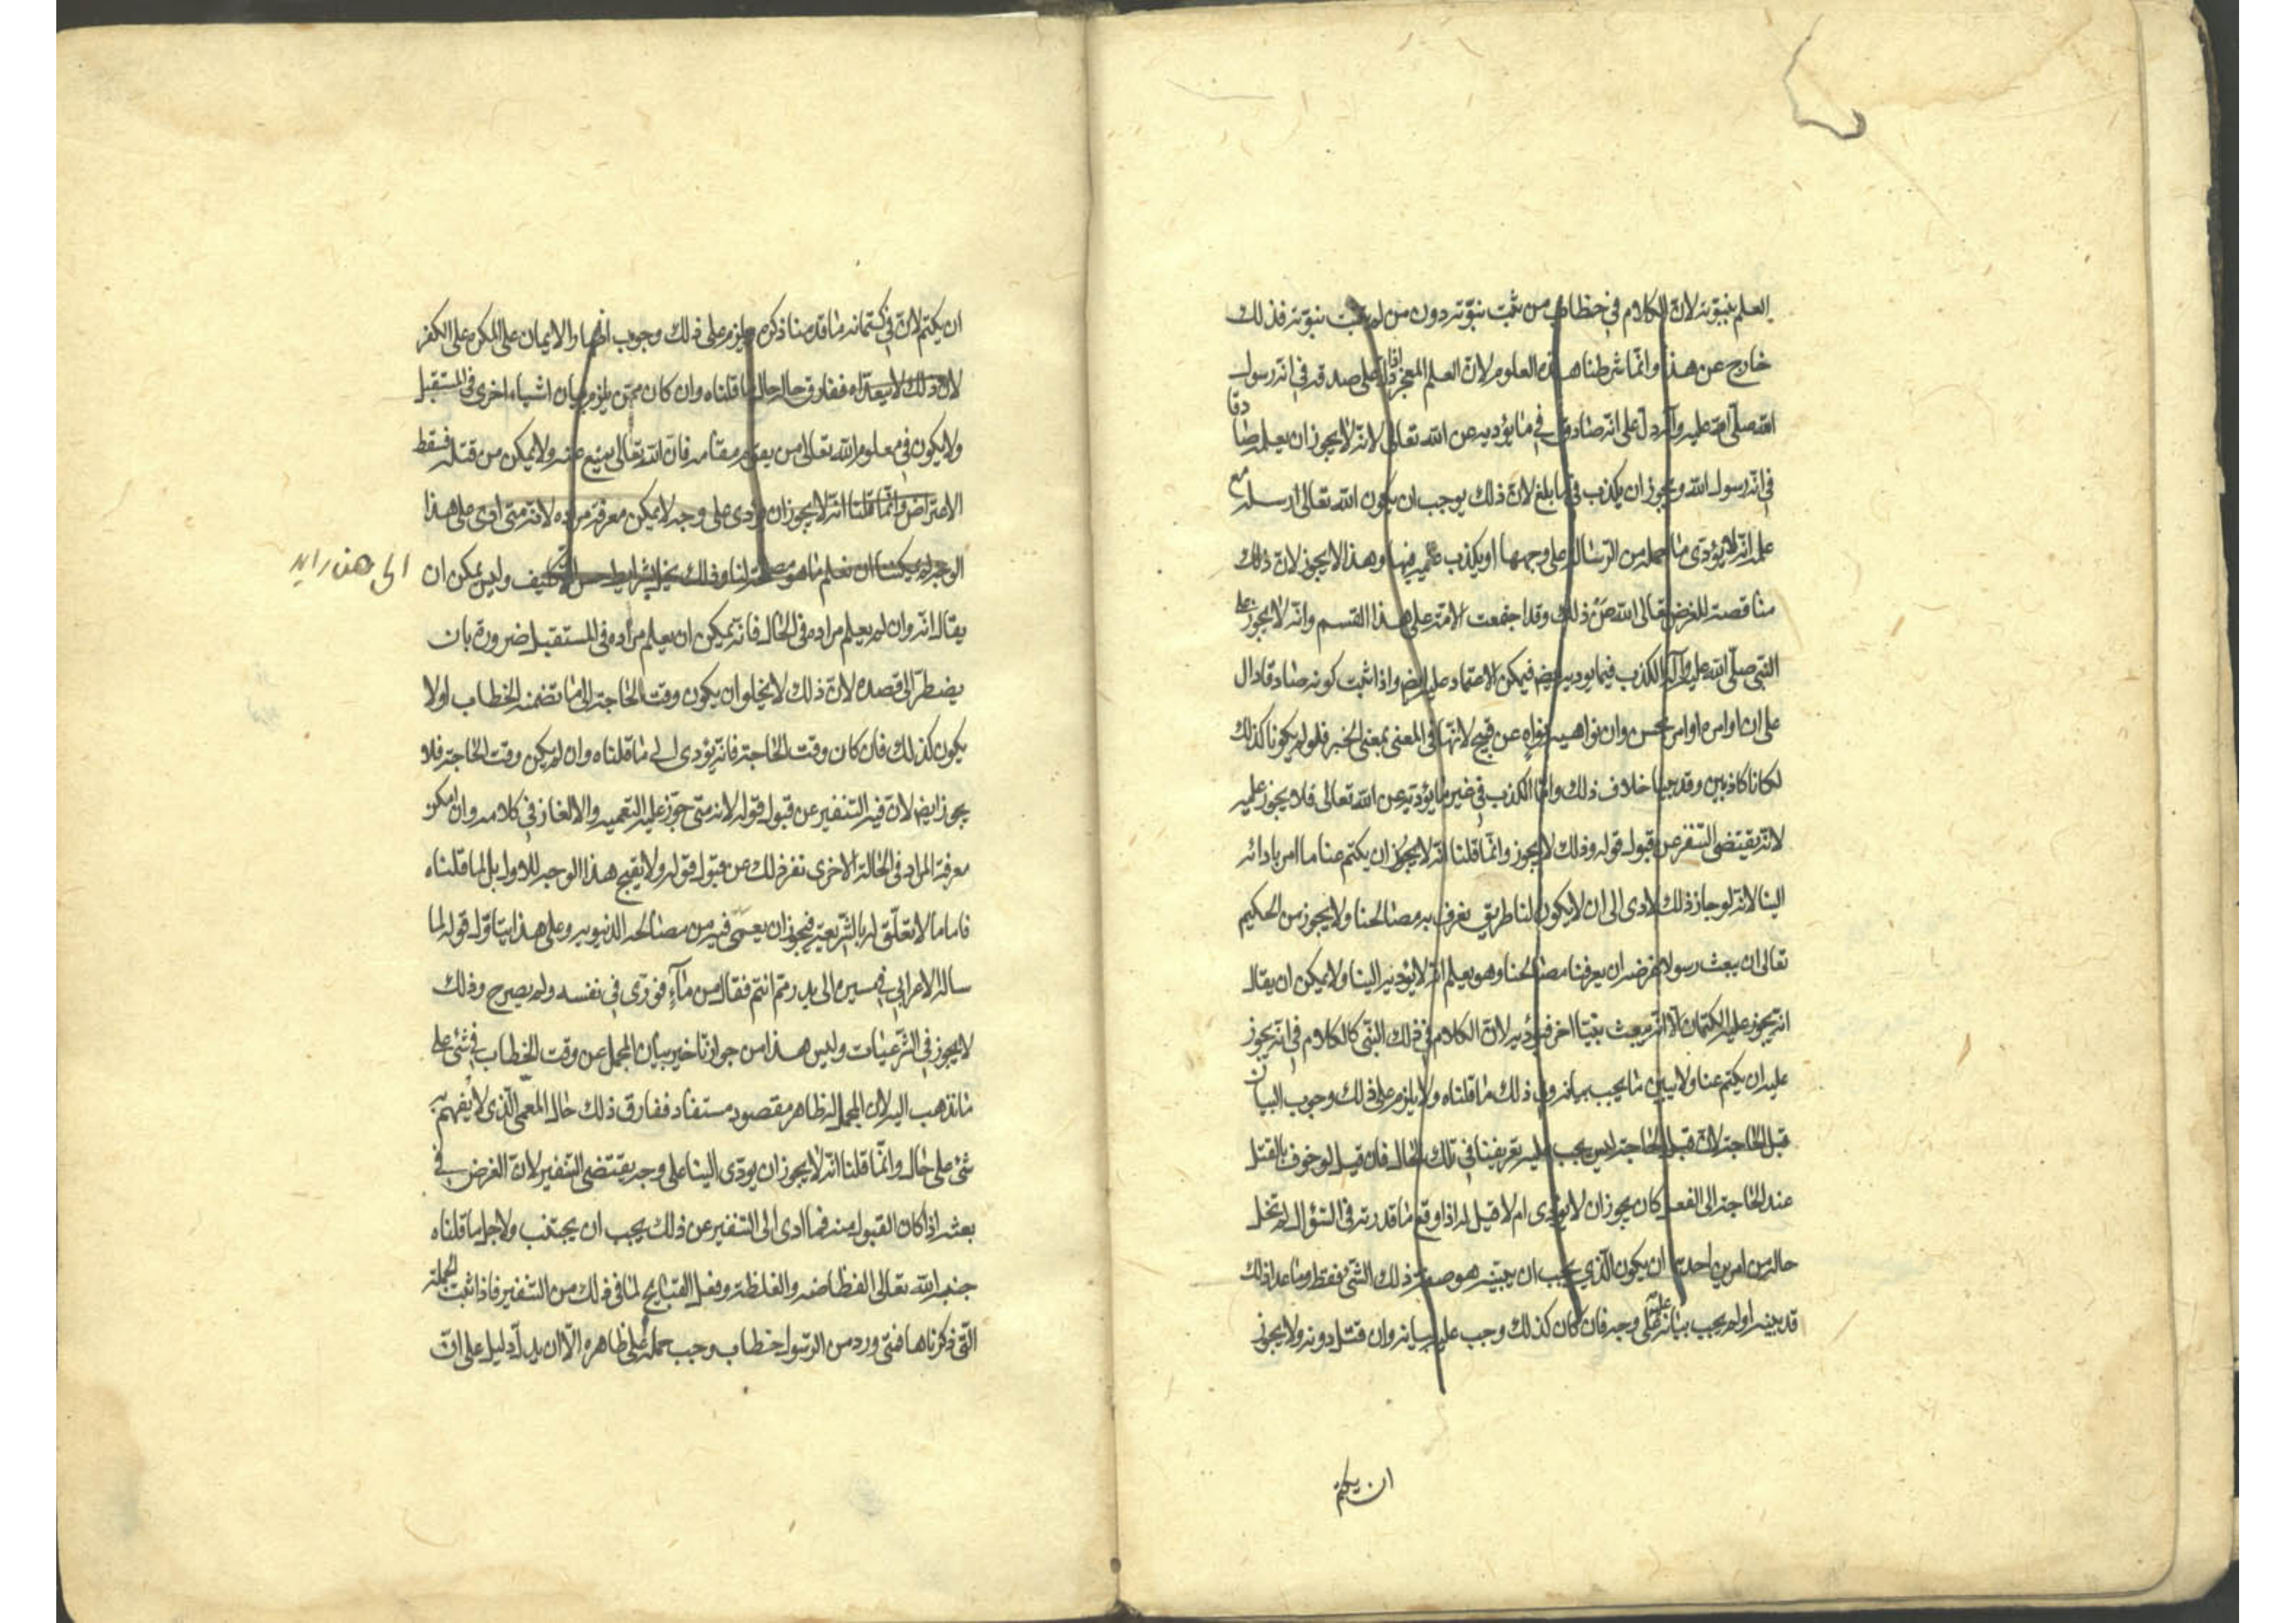 العلم بنبوته لان الكلام في خطاب من ثبت نبوته دون من لم يثبت نبوته فذلك
خارج عن هذا وانما شرطنا هذه العلوم لان العلم المعجز اذا دل على صدقه في انه رسول
الله صلى الله عليه وآله دل على انه صادق في ما يؤديه عن الله تعالى لانه لا يجوز ان يعلم صادقا
في انه رسول الله ويجوز ان يكذب فيما بلغ لان ذلك يوجب ان يكون الله تعالى ارسله مع
علمه انه لا يؤدى ما حمله من الرسالة على وجهها او يكذب عليه فيها وهذا لا يجوز لان ذلك
مناقضة للغرض تعالى الله عن ذلك وقد اجمعت الامة على هذا القسم وانه لا يجوز على
النبي صلى الله عليه وآله الكذب فيما يوديه ايضا فيمكن الاعتماد عليه ايضا واذا ثبت كونه صادقا دال
على ان اوامره اوامر بحسن وان نواهيه نواه عن قبيح لانها في المعنى بمعنى الخبر فلو لم يكونا كذلك
لكانا كاذبين وقد بينا خلاف ذلك واما الكذب في غير ما يؤديه عن الله تعالى فلا يجوز عليه
لانه يقتضى التنفر عن قبول قوله وذلك لا يجوز وانما قلنا انه لا يجوز ان يكتم عنا ما امر بادائه
الينا لانه لو جاز ذلك لادى الى ان لا يكون لنا طريق نعرف به مصالحنا ولا يجوز من الحكيم
تعالى ان يبعث رسولا غرضه ان يعرفنا مصالحنا وهو يعلم انه لا يؤديه الينا ولا يمكن ان يقال
انه يجوز عليه الكتمان الا انه يبعث نبيا اخر فيؤديه لان الكلام في ذلك النبي كالكلام في انه يجوز
عليه ان يكتم عنا ولا يبين ما يجب بيانه وفي ذلك ما قلناه ولا يلزم على ذلك وجوب البيان
قبل الحاجة لان قبل الحاجة ليس يجب عليه تعريفنا في تلك الحال فان قيل لو خوف بالقتل
عند الحاجة الى الفعل كان يجوز ان لا يؤدى ام لا قيل له اذا وقع ما قدرته في السؤال لم تخل
حاله من امرين احدهما ان يكون الذي يجب ان يبينه هو صفة ذلك الشئ فقط وما عدا ذلك
قد بينه او لم يجب بيانه عليه على وجه فان كان كذلك وجب عليه بيانه وان قتل دونه ولا يجوز
ان يكتم
ان يكتم لان في كتمانه ما قدمنا ذكره ولا يلزم على ذلك وجوب اظهار الايمان على المكره على الكفر
لان ذلك لا يتعداه ففارق حاله حال ما قلناه وان كان ممن يلزم بيان اشياء اخرى في المستقبل
ولا يكون في معلوم الله تعالى من يقوم مقامه فان الله تعالى يمنع منه ولا يمكن من قتله فسقط
الاعتراض وانما قلنا انه لا يجوز ان يؤدى على وجه لا يمكن معرفة مراده لانه متى ادى على هذا
الوجه لم يمكننا ان نعلم ما هو مصلحة لنا وذلك يخل بشرايط حسن التكليف وليس يمكن ان
الى هنا زايد
يقال انه وان لم يعلم مراده في الحال فانه يمكن ان يعلم مراده في المستقبل ضرورة بان
يضطر الى قصده لان ذلك لا يخلو ان يكون وقت الحاجة الى ما تضمنه الخطاب او لا
يكون كذلك فان كان وقت الحاجة فانه يؤدى الى ما قلناه وان لم يكن وقت الحاجة فلا
يجوز ايضا لان فيه التنفير عن قبول قوله لانه متى جوز عليه التعميه والالغاز في كلامه وان امكن
معرفة المراد في الحالة الاخرى نفر ذلك عن قبول قوله ولا يقبح هذا الوجه للاول بل لما قلناه
فاما ما لا تعلق له بالشريعة فيجوز ان يعمى فيه من مصالحه الدنيويه وعلى هذا يتاول قوله لما
ساله الاعرابي في مسيره الى بدر مم انتم فقال من ماء فورى في نفسه ولم يصرح وذلك
لا يجوز في الشرعيات وليس هذا من جواز تاخير بيان المجمل عن وقت الخطاب في شئ على
ما نذهب اليه لان المجمل له ظاهر مقصود مستفاد ففارق ذلك حال المعمى الذي لا يفهم به
شئ على حال وانما قلنا انه لا يجوز ان يودى الينا على وجه يقتضى التنفير لان الغرض في
بعثه اذا كان القبول منه فما ادى الى التنفير عن ذلك يجب ان يجتنب ولاجل ما قلناه
جنبه الله تعالى الفظاضه والغلظة وفعل القبايح لما في ذلك من التنفير فاذا ثبت الجملة
التى ذكرناها فمتى ورد من الرسول خطاب وجب حمله على ظاهره الا ان يدل دليل على ان